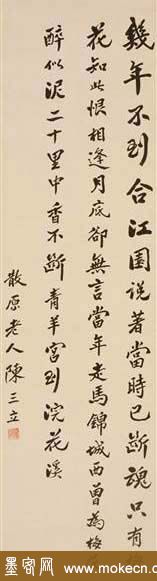 幾年不到合江園說著當時已斷魂只有梅
花知此恨相逢月底卻無言當年走馬錦城西曾為梅
醉似泥二十里中香不斷青羊宮到浣花溪
散原老人陳三立
墨客网 www.mokecn.c